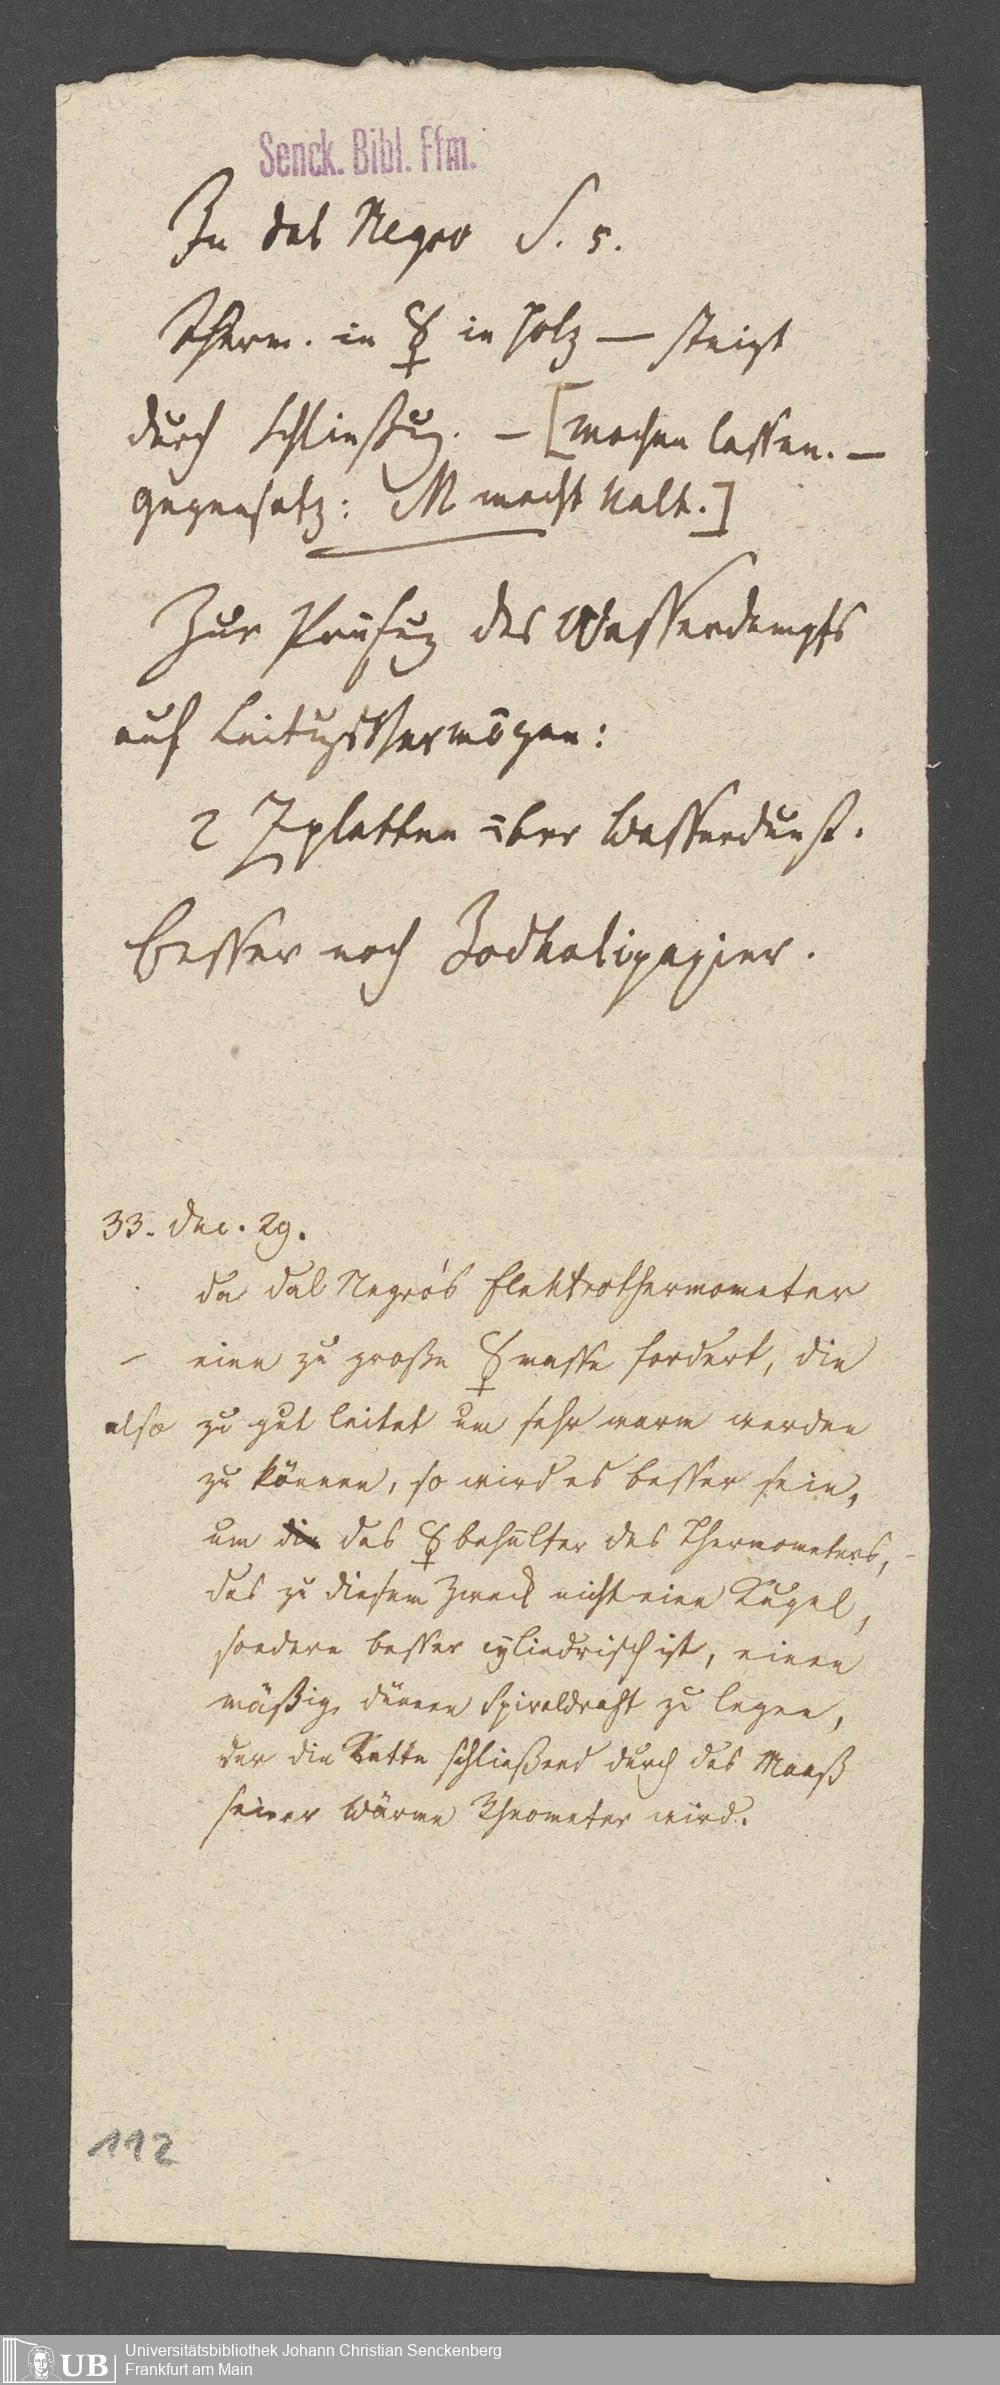 Senck. Bibl. Ffm.
Zu dal Negro S. 5.
Therm. in ☿ in Holz — steigt
durch Schließug. — [machen lassen. —
Gegensatz: M macht kalt.]
Zur Prüfug des Wasserdampfs
auf Leitugsvermögen:
2 Zplatten über Wasserdunst.
besser noch Jodkalipapier.
33. Dec. 29.
da dal Negro's Elektrothermometer
– eine zu große ☿masse fordert, die
also zu gut leitet um sehr warm werden
zu können, so wird es besser sein,
um die das ☿behälter des Thermometers,
das zu diesem Zweck nicht eine Kugel,
sondern besser cylindrisch ist, einen
mäßig dünnen Spiraldraht zu legen,
der die Kette schließend durch das Maaß
seiner Wärme Rheometer wird.
112
UB
Universitätsbibliothek Johann Christian Senckenberg
Frankfurt am Main